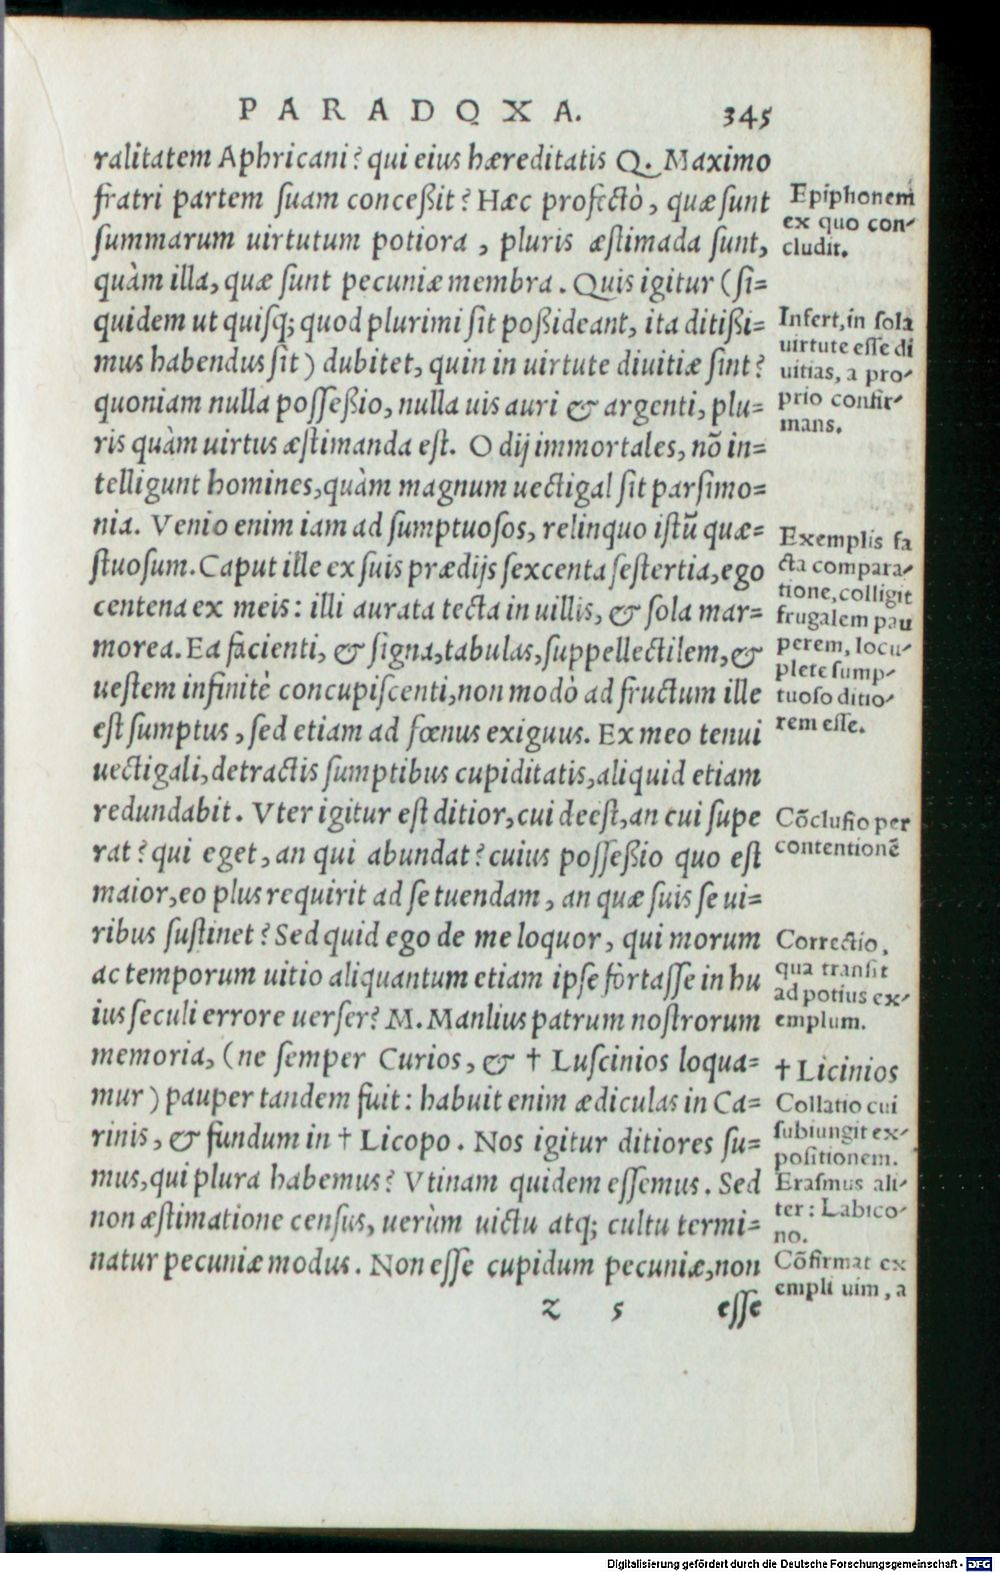 PARADOXA. 345
ralitatem Aphricani? qui eius hæreditatis Q. Maximo
fratri partem ſuam conceßit? Hæc profectò, quæ ſunt
ſummarum uirtutum potiora, pluris æſtimada ſunt,
quàm illa, quæ ſunt pecuniæ membra. Quis igitur (ſi=
quidem ut quiſq; quod plurimi ſit poßideant, ita ditißi=
mus habendus ſit) dubitet, quin in uirtute diuitiæ ſint?
quoniam nulla poſſeßio, nulla uis auri & argenti, plu=
ris quàm uirtus æſtimanda eſt. O dij immortales, nõ in=
telligunt homines, quàm magnum uectigal ſit parſimo=
nia. Venio enim iam ad ſumptuoſos, relinquo iſtũ quæ=
ſtuoſum. Caput ille ex ſuis prædijs ſexcenta ſeſtertia, ego
centena ex meis: illi aurata tecta in uillis, & ſola mar=
morea. Ea facienti, & ſigna, tabulas, ſuppellectilem, &
ueſtem infinitè concupiſcenti, non modò ad fructum ille
eſt ſumptus, ſed etiam ad fœnus exiguus. Ex meo tenui
uectigali, detractis ſumptibus cupiditatis, aliquid etiam
redundabit. Vter igitur eſt ditior, cui deeſt, an cui ſupe
rat? qui eget, an qui abundat? cuius poſſeßio quo eſt
maior, eo plus requirit ad ſe tuendam, an quæ ſuis ſe ui=
ribus ſuſtinet? Sed quid ego de me loquor, qui morum
ac temporum uitio aliquantum etiam ipſe fortaſſe in hu
ius ſeculi errore uerſer? M. Manlius patrum noſtrorum
memoria, (ne ſemper Curios, & † Luſcinios loqua=
mur) pauper tandem fuit: habuit enim ædiculas in Ca=
rinis, & fundum in † Licopo. Nos igitur ditiores ſu=
mus, qui plura habemus? Vtinam quidem eſſemus. Sed
non æſtimatione cenſus, uerùm uictu atq; cultu termi=
natur pecuniæ modus. Non eſſe cupidum pecuniæ, non
z 5 eſſe
Epiphonem
ex quo con-
cludit.
Infert, in ſola
uirtute eſſe di
uitias, a pro-
prio confir-
mans.
Exemplis fa
cta compara-
tione, colligit
frugalem pau
perem, locu-
plete ſump-
tuoſo ditio-
rem eſſe.
Cõcluſio per
contentionẽ
Correctio,
qua tranſit
ad potius ex-
emplum.
† Licinios
Collatio cui
ſubiungit ex-
poſitionem.
Eraſmus ali-
ter: Labico-
no.
Cõfirmat ex
empli uim, a
Digitalisierung gefördert durch die Deutsche Forschungsgemeinschaft - DFG